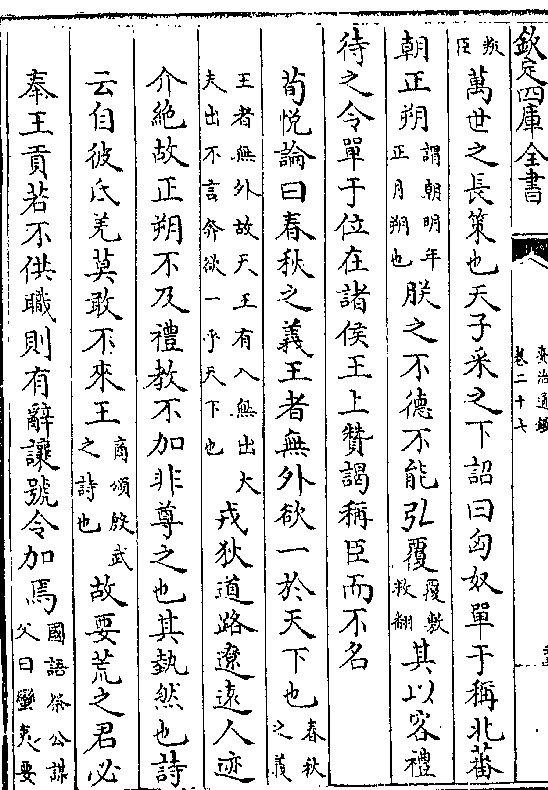 欽定四庫全書
資治通鑑
卷二十七
叛臣萬世之長策也天子采之下詔曰匈奴單于稱北蕃
朝正朔謂朝明年正月朔也朕之不德不能弘覆覆敷救翻其以客禮
待之令單于位在諸侯王上贊謁稱臣而不名
荀悅論曰春秋之義王者無外欲一於天下也春秋之義
王者無外故天王有入無出大夫出不言奔欲一乎天下也戎狄道路遼遠人迹
介絶故正朔不及禮教不加非尊之也其埶然也詩
云自彼氐羌莫敢不來王商頌殷武之詩也故要荒之君必
奉王貢若不供職則有辭讓號令加焉國語祭公謀父曰蠻夷要